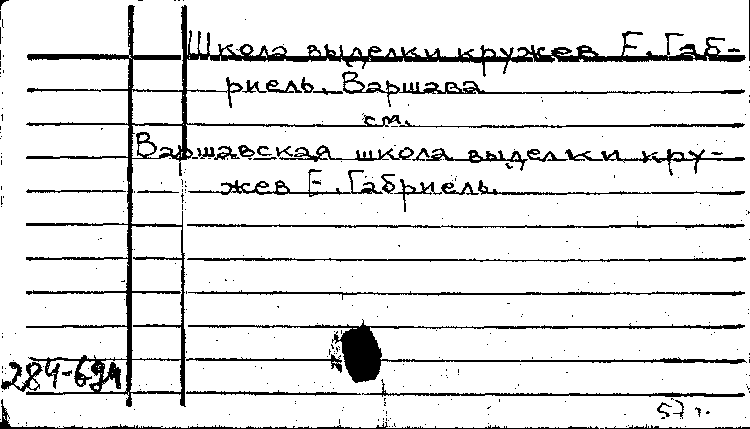 Школа выделки кружев Е. Габ-
риель. Варшава
см.
Варшавская школа выделки кру-
жев Е. Габриель.
284-694
57 г.